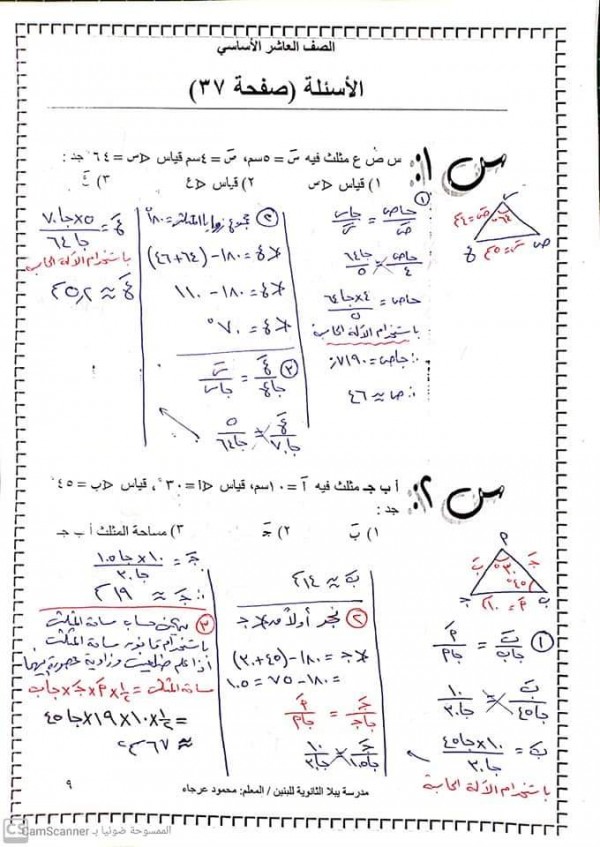 الصف العاشر الأساسي
الأسئلة (صفحة ٣٧)
س ١:
س ص ع مثلث فيه سَ = ٥سم، صَ = ٤سم قياس >س = ٦٤ جد :
١) قياس >ص ٢) قياس >ع ٣) عَ
①
جاص/صَ = جاس/سَ
جاص/٤ = جا٦٤/٥
جاص = ٤×جا٦٤/٥
باستخدام الآلة الحاسبة
∴ جاص = ٠٫٧١٩٠
∴ ص ≈ ٤٦
② مجموع زوايا المثلث = ١٨٠°
>ع = ١٨٠ - (٦٤+٤٦)
>ع = ١٨٠ - ١١٠
>ع = ٧٠°
③ عَ/جاع = سَ/جاس
عَ/جا٧٠ = ٥/جا٦٤
عَ = ٥×جا٧٠/جا٦٤
باستخدام الآلة الحاسبة
عَ ≈ ٥٫٢ م
س
ص
ع
٦٤
صَ = ٤م
سَ = ٥م
س ٢:
أ ب جـ مثلث فيه أَ = ١٠سم، قياس >أ = ٣٠°، قياس >ب = ٤٥°
جد :
١) بَ ٢) جـَ ٣) مساحة المثلث أ ب جـ
م
جـ
ب
بَ
جـَ
٣٠°
٤٥°
مَ = ١٠م
① بَ/جاب = مَ/جام
بَ/جا٤٥ = ١٠/جا٣٠
بَ = ١٠×جا٤٥/جا٣٠
باستخدام الآلة الحاسبة
بَ ≈ ١٤م
② نجد أولاً
>جـ = ١٨٠ - (٤٥+٣٠)
= ١٨٠ - ٧٥ = ١٠٥
جـَ/جاجـ = مَ/جام
جـَ/جا١٠٥ = ١٠/جا٣٠
جـَ = ١٠×جا١٠٥/جا٣٠
∴ جـَ ≈ ١٩م
③ يمكن حساب مساحة المثلث
باستخدام قانون مساحة المثلث
إذا علم ضلعين وزاوية محصورة بينهما
مساحة المثلث = ½×مَ×جـَ×جاب
= ½×١٠×١٩×جا٤٥
≈ ٦٧م²
مدرسة يبلا الثانوية للبنين / المعلم: محمود عرجاء
٩
CS
CamScanner الممسوحة ضوئيا بـ